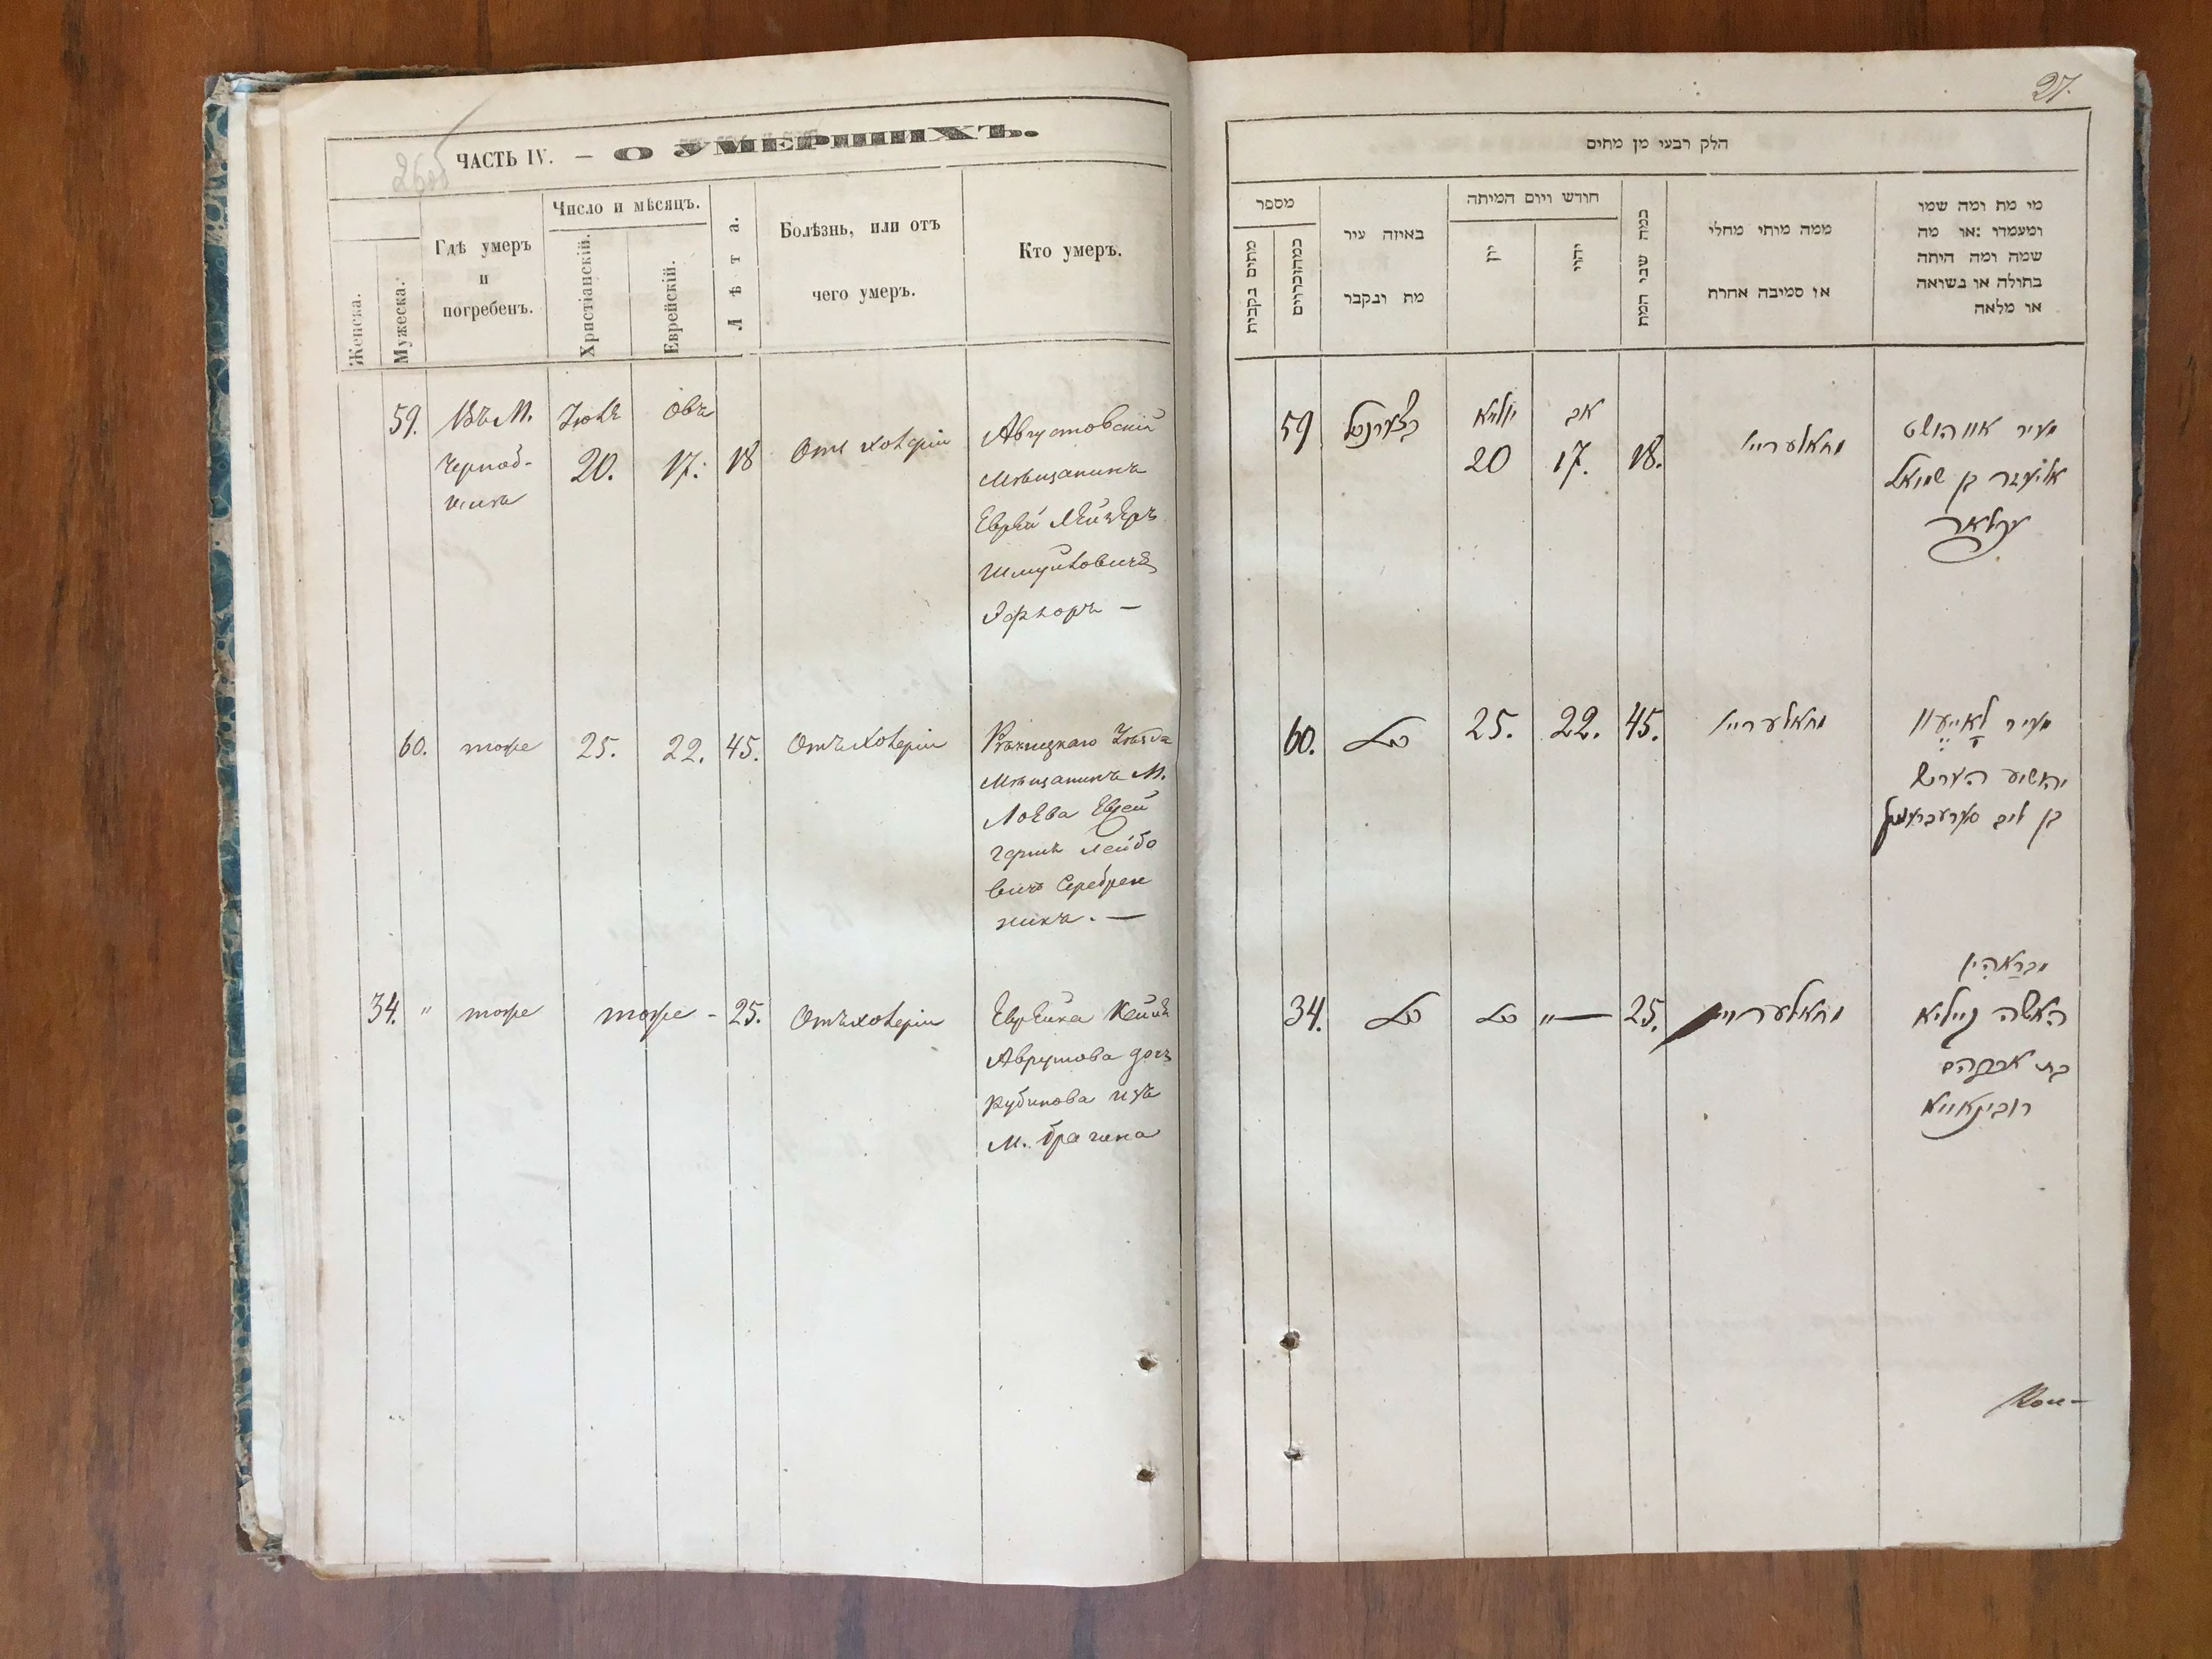 ЧАСТЬ IV. — О УМЕРШИХЪ.
Женска.
Мужеска.
Гдѣ умеръ
и
погребенъ.
Число и мѣсяцъ.
Христіанскій.
Еврейскій.
Лѣта.
Болѣзнь, или отъ
чего умеръ.
Кто умеръ.
59. Въ М. Іюль Овъ
Черноб-
20. 17. 18 Отъ холеріи
Августовскій
мѣщанинъ
Еврей Лейзеръ
Шмуйловичъ
60. тоже 25. 22. 45. Отъ холеріи
Рѣчицкаго Уѣзда
Мѣщанинъ М.
Лоева Еврей
Гершъ Лейбо
вичъ Серебрен
никъ. —
34. " тоже тоже - 25. Отъ холеріи
Еврейка
Аврумова дочь
Рубинова изъ
М. Брагина
27.
חלק רבעי מן מתים
מספר
מתים בקבית
במחוברים
באיזה עיר
מת ונקבר
חודש ויום המיתה
יון
יהודי
כמה שני המת
ממה מותי מחלי
או סמיבה אחרת
מי מת ומה שמו
ומעמדו :או מה
שמה ומה היתה
בתולה או נשואה
או מלאה
59 יוליא אב
20 17. 18. וחאלעריי
מעיר אווהושט
אליעזר בן שמואל
60. 25. 22. 45. וחאלעריי
מעיר לאייעוו
יהושיע הערש
בן ליב
34. 25. וחאלעריי
מבראהין
האשה
בת אברהם
רובינאווא
Кон-